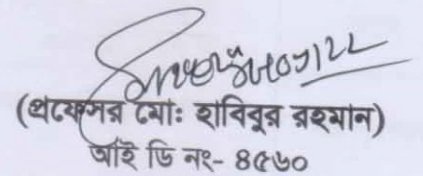 (প্রফেসর মোঃ হাবিবুর রহমান)
আই ডি নং- ৪৫৬০